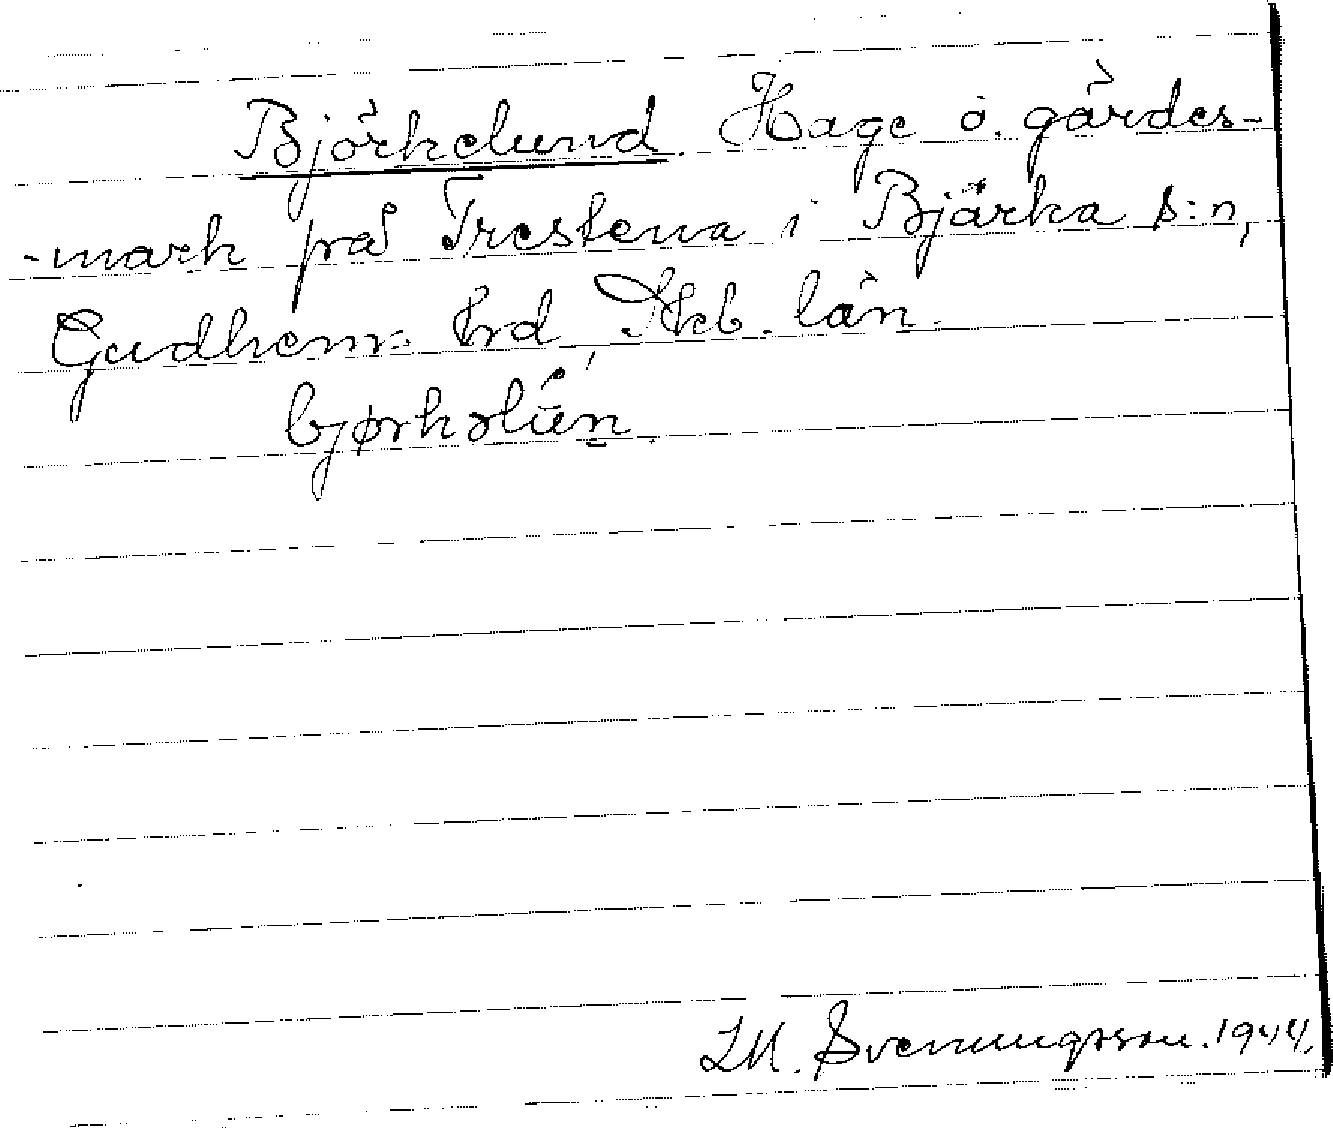 Björkelund. Hage o. gärdes-
-mark på Trestena i Bjärka s:n,
Gudhems hrd, Skb. län.
bjørkəlún.
I M. Svenungsson. 1944.